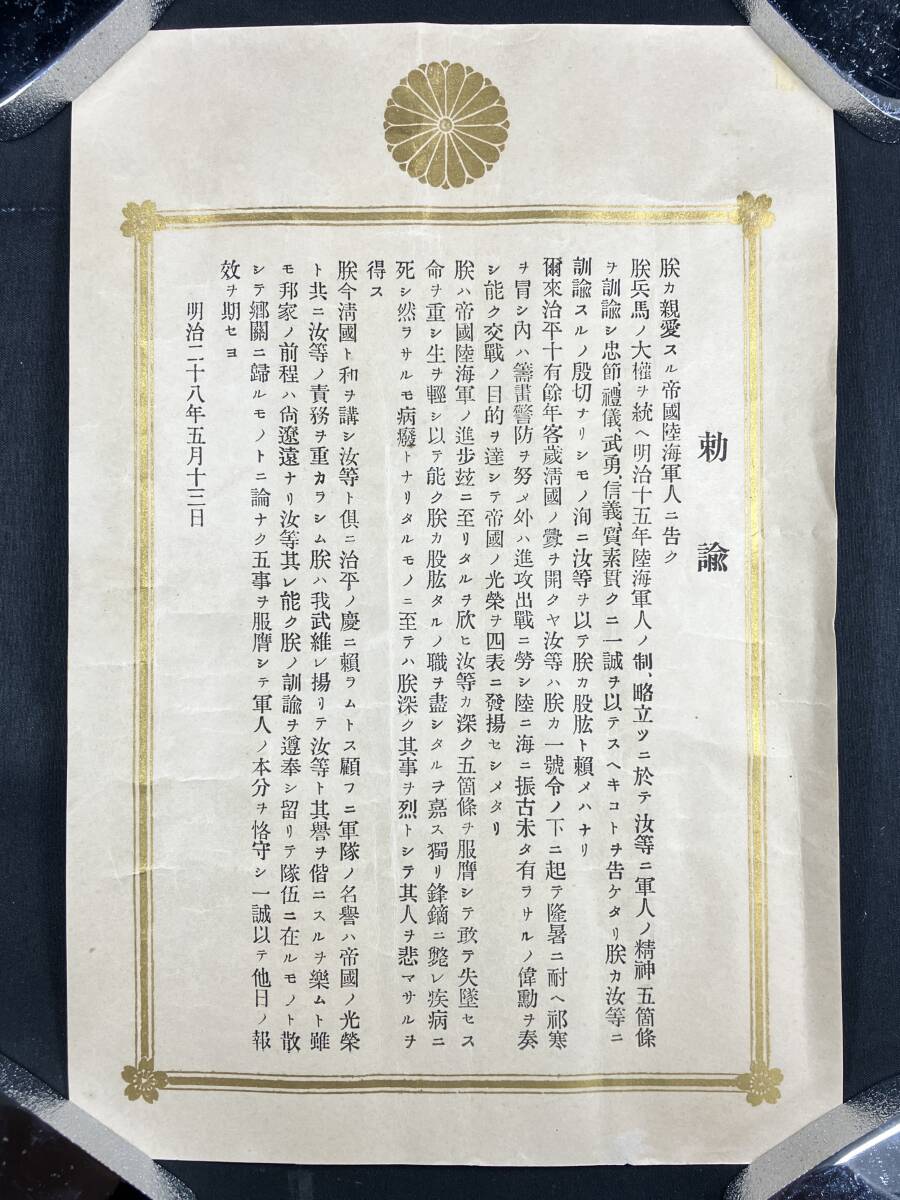 勅諭
朕カ親愛スル帝國陸海軍人ニ告ク
朕兵馬ノ大權ヲ統ヘ明治十五年陸海軍人ノ制、略立ツニ於テ汝等ニ軍人ノ精神五箇條
ヲ訓諭シ忠節、禮儀、武勇、信義、質素貫クニ一誠ヲ以テスヘキコトヲ告ケタリ朕カ汝等ニ
訓諭スルノ殷切ナリシモノ洵ニ汝等ヲ以テ朕カ股肱ト賴メハナリ
爾來治平十有餘年客歲淸國ノ釁ヲ開クヤ汝等ハ朕カ一號令ノ下ニ起テ隆暑ニ耐ヘ祁寒
ヲ冒シ內ハ籌畫警防ヲ努メ外ハ進攻出戰ニ勞シ陸ニ海ニ振古未タ有ラサルノ偉勳ヲ奏
シ能ク交戰ノ目的ヲ達シテ帝國ノ光榮ヲ四表ニ發揚セシメタリ
朕ハ帝國陸海軍ノ進步玆ニ至リタルヲ欣ヒ汝等カ深ク五箇條ヲ服膺シテ敢テ失墜セス
命ヲ重シ生ヲ輕シ以テ能ク朕カ股肱タルノ職ヲ盡シタルヲ嘉ス獨リ鋒鏑ニ斃レ疾病ニ
死シ然ラサルモ病癈トナリタルモノニ至テハ朕深ク其事ヲ烈トシテ其人ヲ悲マサルヲ
得ス
朕今淸國ト和ヲ講シ汝等ト俱ニ治平ノ慶ニ賴ラムトス顧フニ軍隊ノ名譽ハ帝國ノ光榮
ト共ニ汝等ノ責務ヲ重カラシム朕ハ我武維レ揚リテ汝等ト其譽ヲ偕ニスルヲ樂ムト雖
モ邦家ノ前程ハ尙遼遠ナリ汝等其レ能ク朕ノ訓諭ヲ遵奉シ留リテ隊伍ニ在ルモノト散
シテ鄕關ニ歸ルモノトニ論ナク五事ヲ服膺シテ軍人ノ本分ヲ恪守シ一誠以テ他日ノ報
效ヲ期セヨ
明治二十八年五月十三日